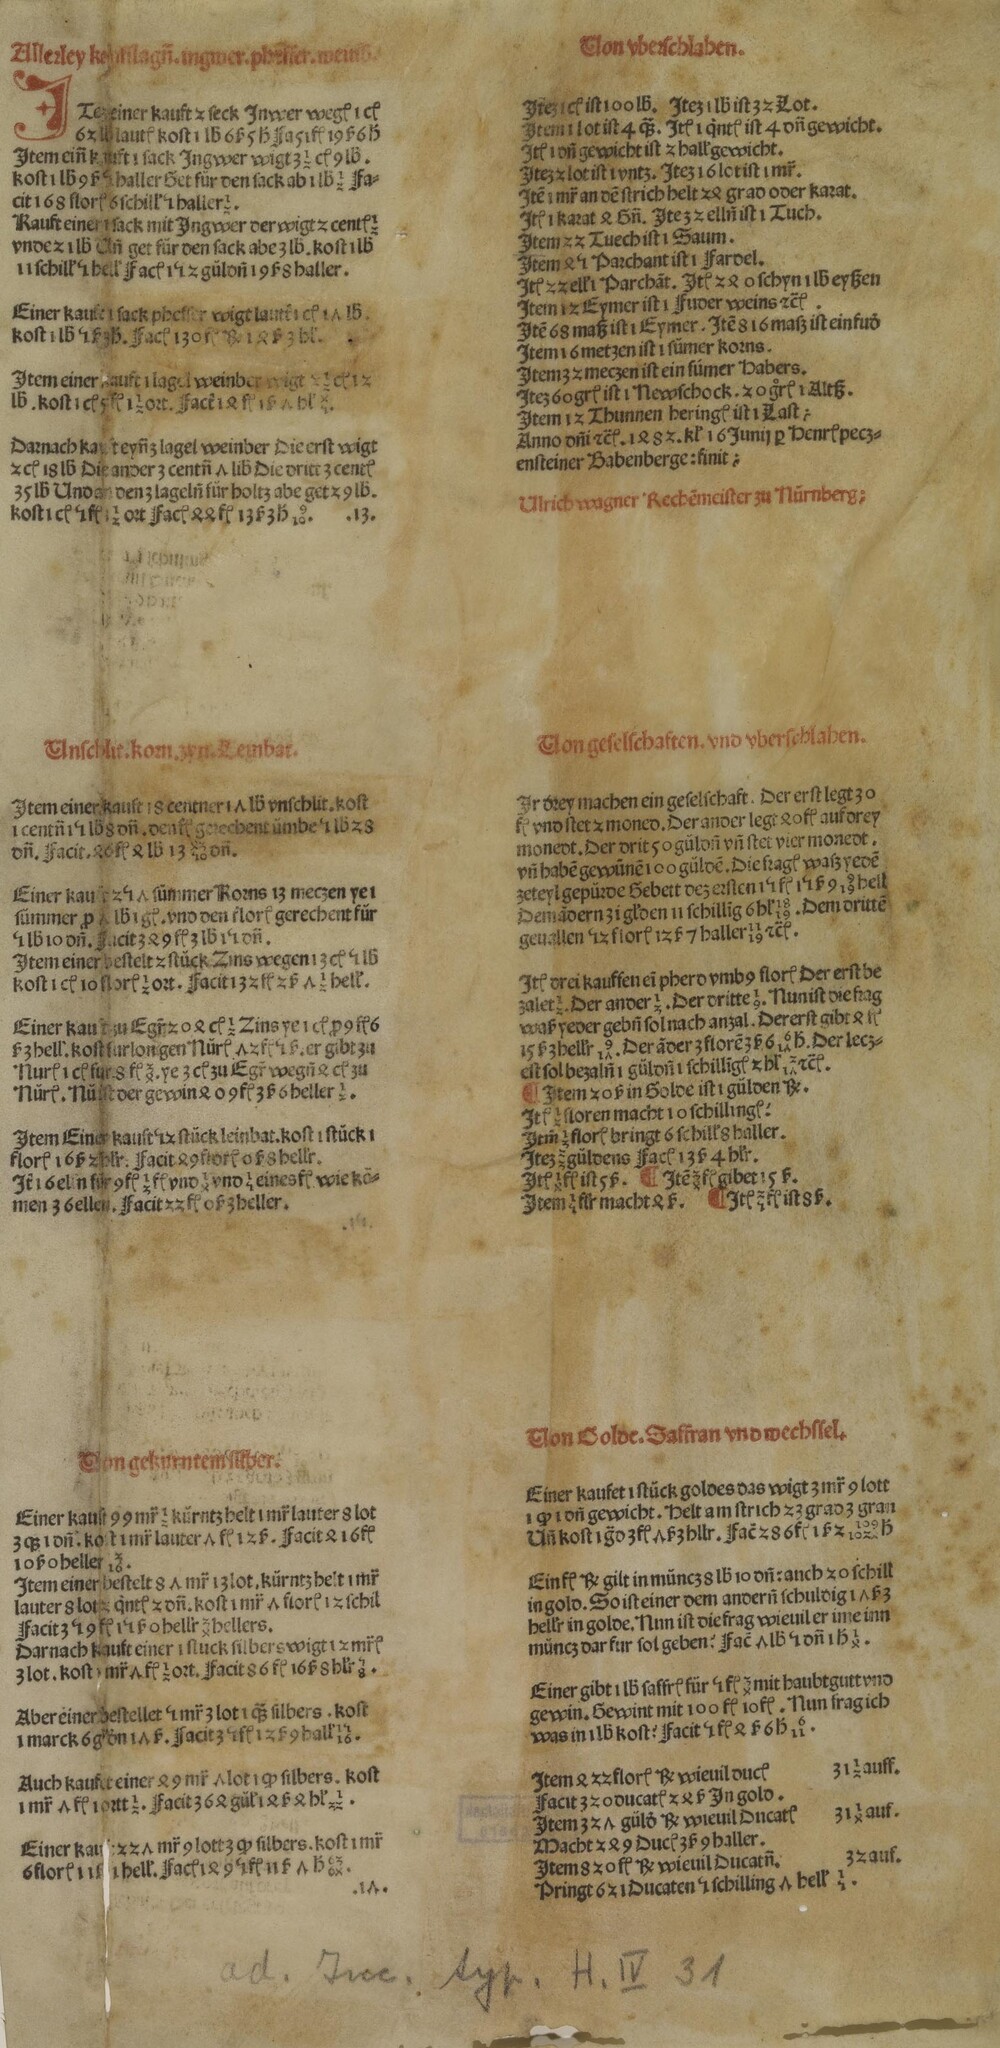 Allerley kauffslagñ. ingwer. pheffer. weinb.
ITez einer kauft 2 seck Inwer wegñ 1 cſ
6 2 lb lautſ kost 1 lb 6 ß 5 h Fa 51 fſ 19 ß 6 h
Item eiñ kauft 1 sack Ingwer wigt 3 ½ cſ 9 lb.
kost 1 lb 9 ß haller Get für den sack ab 1 lb ½ Fa-
cit 168 florſ 6 schillˈ 4 haller
Kauft einer 1 sack mit Ingwer der wigt 2 centſ
vnde 21 lb Uñ get für den sack abe 3 lb. kost 1 lb
11 schillˈ 4 hellˈ Facſ 142 güldñ 19 ß 8 haller.
Einer kauft 1 sack pheffer wigt lautſ 1 cſ 17 lb.
kost 1 lb 4 ß 3 h. Facſ 130 fſ
Item einer kauft 1 lagel weinber wigt 2 ½ cſ 12
lb. kost 1 cſ 5 fſ 1 ½ ort. Facit 14 fſ 1 ß 7 hlˈ
Darnach kauft eyñ 3 lagel weinber Die erst wigt
2 cſ 18 lb Die ander 3 centñ 7 lib Die dritt 3 centſ
35 lb Und an den 3 lagelñ für holtz abe get 29 lb.
kost 1 cſ 4 fſ 1 ½ ort Facſ 44 fſ 13 ß 3 h .13.
Von vberschlahen.
Itez 1 cſ ist 100 lb. Itez 1 lb ist 32 Lot.
Item 1 lot ist 4 q̃. Itſ 1 q̃ntſ ist 4 dñ gewicht.
Itſ 1 dñ gewicht ist 2 hallˈ gewicht.
Itez 2 lot ist 1 vntz. Itez 16 lot ist 1 mr̃.
Itẽ 1 mr̃ an dẽ strich helt 24 grad oder karat.
Itſ 1 karat 4 Gñ. Itez 32 ellñ ist 1 Tuch.
Item 22 Tuech ist 1 Saum.
Item 44 Parchant ist 1 Fardel.
Itſ 22 ellˈ 1 Parchãt. Itſ 240 schyn 1 lb eyßen
Item 12 Eymer ist 1 Fuder weins ꝛcſ.
Itẽ 68 maß ist 1 Eymer. Itẽ 816 maß ist ein fuď
Item 16 metzen ist 1 sümer korns.
Item 32 meczen ist ein sümer habers.
Itez 60 grſ ist 1 Newschock. 20 grſ 1 Altß.
Item 12 Thunnen heringſ ist 1 Last;
Anno dñi ꝛcſ. 1482. klˈ 16 Junij p Henrſ pecz-
ensteiner Babenberge: finit;
Ulrich wagner Rechẽmeister zu Nürnberg;
Unschlit. korn. zyn. Leinbat.
Item einer kauft 18 centner 17 lb vnschlit. kost
1 centñ 14 lb 8 dñ. den fſ gerechent ümbe 4 lb 28
dñ. Facit. 46 fſ 4 lb 13 dñ.
Einer kauft 247 sümmer Korns 13 meczen ye 1
sümmer p̱ 7 lb 1 gſ. vnd den florſ gerechent für
4 lb 10 dñ. Facit 349 fſ 3 lb 14 dñ.
Item einer bestelt 2 stück Zins wegen 13 cſ 4 lb
kost 1 cſ 10 florſ ½ ort. Facit 132 fſ 2 ß 7 ½ hellˈ.
Einer kauft zu Egr̃ 204 cſ ½ Zins ye 1 cſ p̱ 9 fſ 6
ß 3 hellˈ. kost furlon gen Nürſ 72 fſ 4 ß. er gibt zu
Nurſ 1 cſ fur 8 fſ. ye 3 cſ zu Egrˈ wegñ 4 cſ zu
Nürſ. Nu ist der gewin 409 fſ 3 ß 6 heller.
Item Einer kauft 42 stück leinbat. kost 1 stück 1
florſ 16 ß 2 hlr. Facit 49 florſ 0 ß 8 hellr.
Itẽ 16 elln für 9 fſ ½ fſ vnd ¼ vnd eines fſ wie kõ-
men 36 ellen. Facit 22 fſ 0 ß 3 heller.
Von geselschaften. vnd vberschlahen.
Ir drey machen ein geselschaft. Der erst legt 30
fſ vnd stet 2 moned. Der ander legt 40 fſ auf drey
monedt. Der drit 50 güldñ vñ stet vier monedt.
vñ habẽ gewũnẽ 100 güldẽ. Die fragſ waß yedẽ
zeteyl gepürde Gebett dez ersten 14 fſ 14 ß 9 hell
Dem ãdern 31 glˈden 11 schillĩg 6 hlˈ. Dem drittẽ
geuallen 42 florſ 12 ß 7 haller ꝛcſ.
Itſ drei kauffen eĩ pherd vmb 9 florſ Der erst be
zalet ½. Der ander. Der dritte. Nun ist die frag
waß yeder gebñ sol nach anzal. Der erst gibt 4 fſ
15 ß 3 hellr. Der ãder 3 florẽ 3 ß 6 h. Der lecz-
est sol bezalñ 1 güldñ 1 schillĩgſ 2 hlˈ ꝛcſ.
¶ Item 20 ß in Golde ist 1 gülden ℞.
Itſ ½ floren macht 10 schillingſ:
Itm̃ ⅓ florſ bringt 6 schillˈ 8 haller.
Itez ⅔ güldens Facſ 13 ß 4 hlr.
Itſ ¼ fſ ist 5 ß. ¶ Itẽ ¾ fſ gibet 15 ß.
Item ⅕ flr macht 4 ß. ¶ Itſ ⅖ fſ ist 8 ß.
Von gekurntem silber.
Einer kauft 99 mr̃ ½ kürntz helt 1 mr̃ lauter 8 lot
3 q̃ 1 dñ. kost 1 mr̃ lauter 7 fſ 12 ß. Facit 416 fſ
10 ß 0 heller.
Item einer bestelt 87 mr̃ 13 lot, kürntz helt 1 mr̃
lauter 8 lot 2 q̃ntſ 2 dñ. kost 1 mr̃ 7 florſ 12 schil
Facit 349 fſ 14 ß 0 hellr hellers.
Darnach kauft einer 1 stuck silbers wigt 12 mr̃ſ
3 lot. kost 1 mr̃ 7 fſ ½ ort. Facit 86 fſ 16 ß 8 hlr.
Aber einer bestellet 4 mr̃ 3 lot 1 q̃ silbers. kost
1 marck 6 glˈdn 17 ß. Facit 34 fſ 12 ß 9 hallˈ.
Auch kaufet einer 49 mr̃ 7 lot 1 q̃ silbers. kost
1 mr̃ 7 fſ 1 ortt. Facit 364 gülˈ 14 ß 4 hlˈ.
Einer kauft 227 mr̃ 9 lott 3 q̃ silbers. kost 1 mr̃
6 florſ 11 ß 1 hellˈ. Facſ 1494 fſ 11 ß 7 h.
.17.
Von Golde. Saffran vnd wechssel.
Einer kaufet 1 stück goldes das wigt 3 mr̃ 9 lott
1 q̃ 1 dñ gewicht. Helt am strich 23 grad 3 gran
Uñ kost 1 g̃d 3 fſ 7 ß 3 hllr. Facẽ 286 fſ 1 ß 2 h
Ein fſ ℞ gilt in müncz 8 lb 10 dñ: auch 20 schill
in gold. So ist einer dem andern schuldig 17 ß 3
hellr in golde. Nun ist die frag wieuil er ime inn
müncz dar fur sol geben: Facẽ 7 lb 4 dñ 1 h.
Einer gibt 1 lb saffrſ für 4 fſ mit haubtgutt vnd
gewin. Gewint mit 100 fſ 10 fſ. Nun frag ich
was in 1 lb kost: Facit 4 fſ 4 ß 6 h.
Item 422 florſ ℞ wieuil ducſ 31 ½ auff.
Facit 320 ducatſ 2 4 ß In gold.
Item 327 gülď ℞ wieuil Ducatſ 31 auf.
Macht 249 Ducſ 3 ß 9 haller.
Item 820 fſ ℞ wieuil Ducatñ. 32 auf.
Pringt 621 Ducaten 4 schilling 7 hellˈ.
ad. Inc. typ. H. IV 31